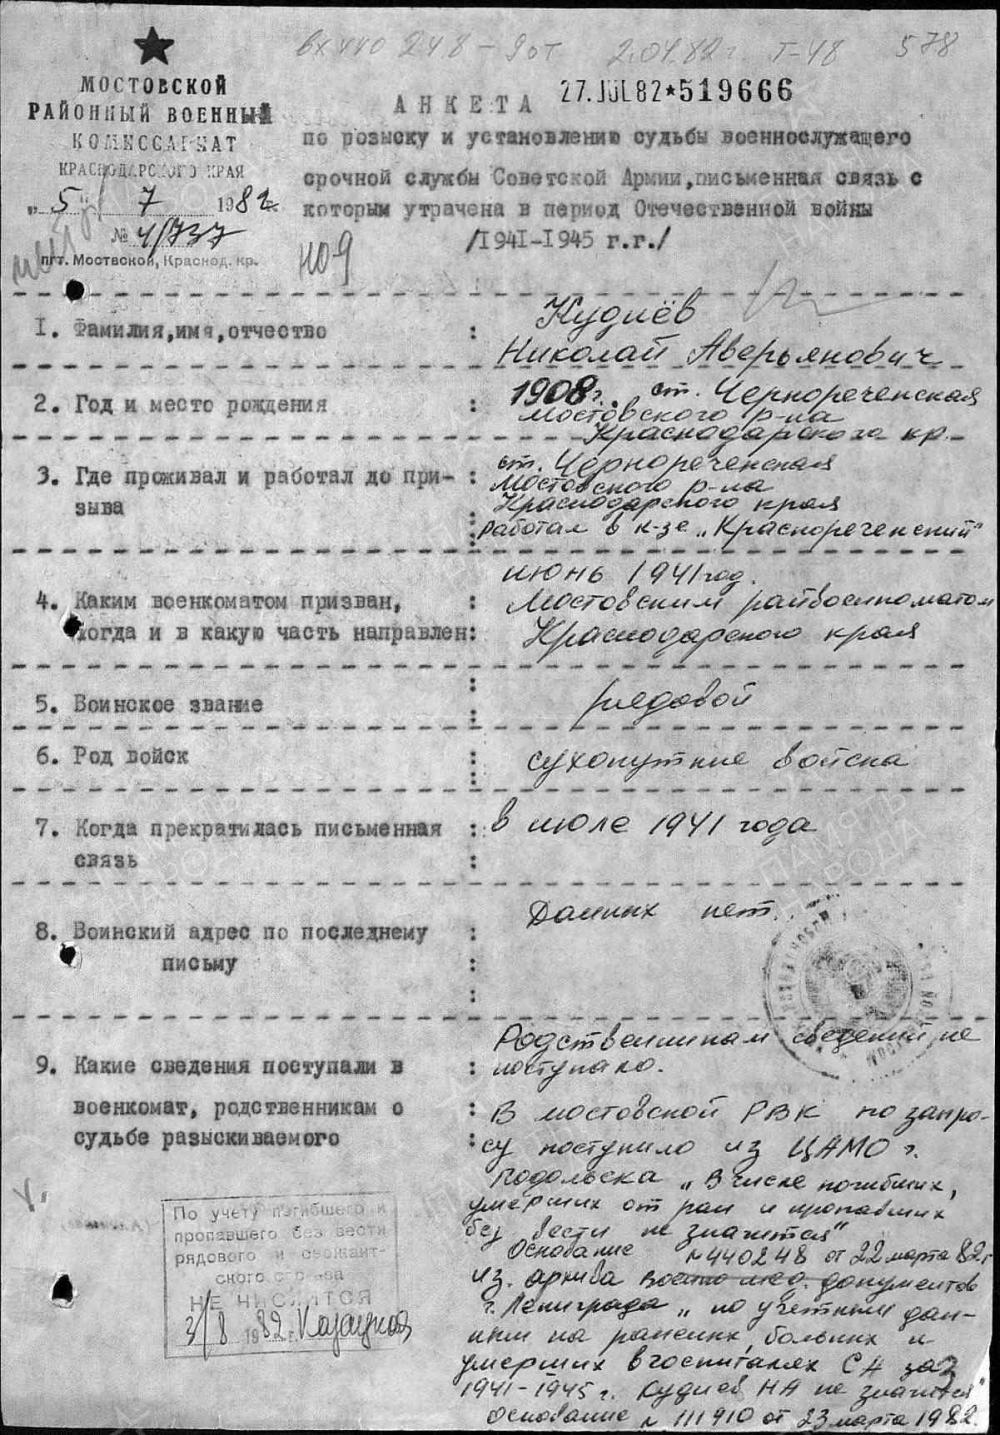 вх 440248 - 9 от 2.04.82 г. Т-48 578
МОСТОВСКОЙ
РАЙОННЫЙ ВОЕННЫЙ
КОМИССАРИАТ
КРАСНОДАРСКОГО КРАЯ
"5" 7 1982 г.
№ 4/737
пгт. Мостовской, Краснод. кр.
но9
27.JUL82*519666
АНКЕТА
по розыску и установлению судьбы военнослужащего
срочной службы Советской Армии, письменная связь с
которым утрачена в период Отечественной войны
/1941-1945 г.г./
1. Фамилия, имя, отчество : Кудиёв
Николай Аверьянович
2. Год и место рождения : 1908 г. ст. Чернореченская
Мостовского р-на
Краснодарского кр.
3. Где проживал и работал до при- : ст. Чернореченская
зыва Мостовского р-на
Краснодарского края
работал в к-зе „Краснореченский"
4. Каким военкоматом призван, : июнь 1941 год.
когда и в какую часть направлен: Мостовским райвоенкоматом
Краснодарского края
5. Воинское звание : рядовой
6. Род войск : сухопутные войска
7. Когда прекратилась письменная : в июле 1941 года
связь :
8. Воинский адрес по последнему : Данных нет.
письму :
9. Какие сведения поступали в : Родственникам сведений не
военкомат, родственникам о : поступало.
судьбе разыскиваемого : В мостовской РВК по запро-
су поступило из ЦАМО г.
Подольска „В числе погибших,
умерших от ран и пропавших
без вести не значится"
Основание №440248 от 22 марта 82 г
Из архива военно мед. документов
г. Ленинграда „по учетным дан-
ным на раненых, больных и
умерших в госпиталях СА за
1941-1945 г. Кудиев НА не значится"
Основание № 111910 от 23 марта 1982.
По учету погибшего и
пропавшего без вести
рядового и сержант-
ского состава
НЕ ЧИСЛИТСЯ
3/8 1982 г.
ПАМЯТЬ
НАРОДА